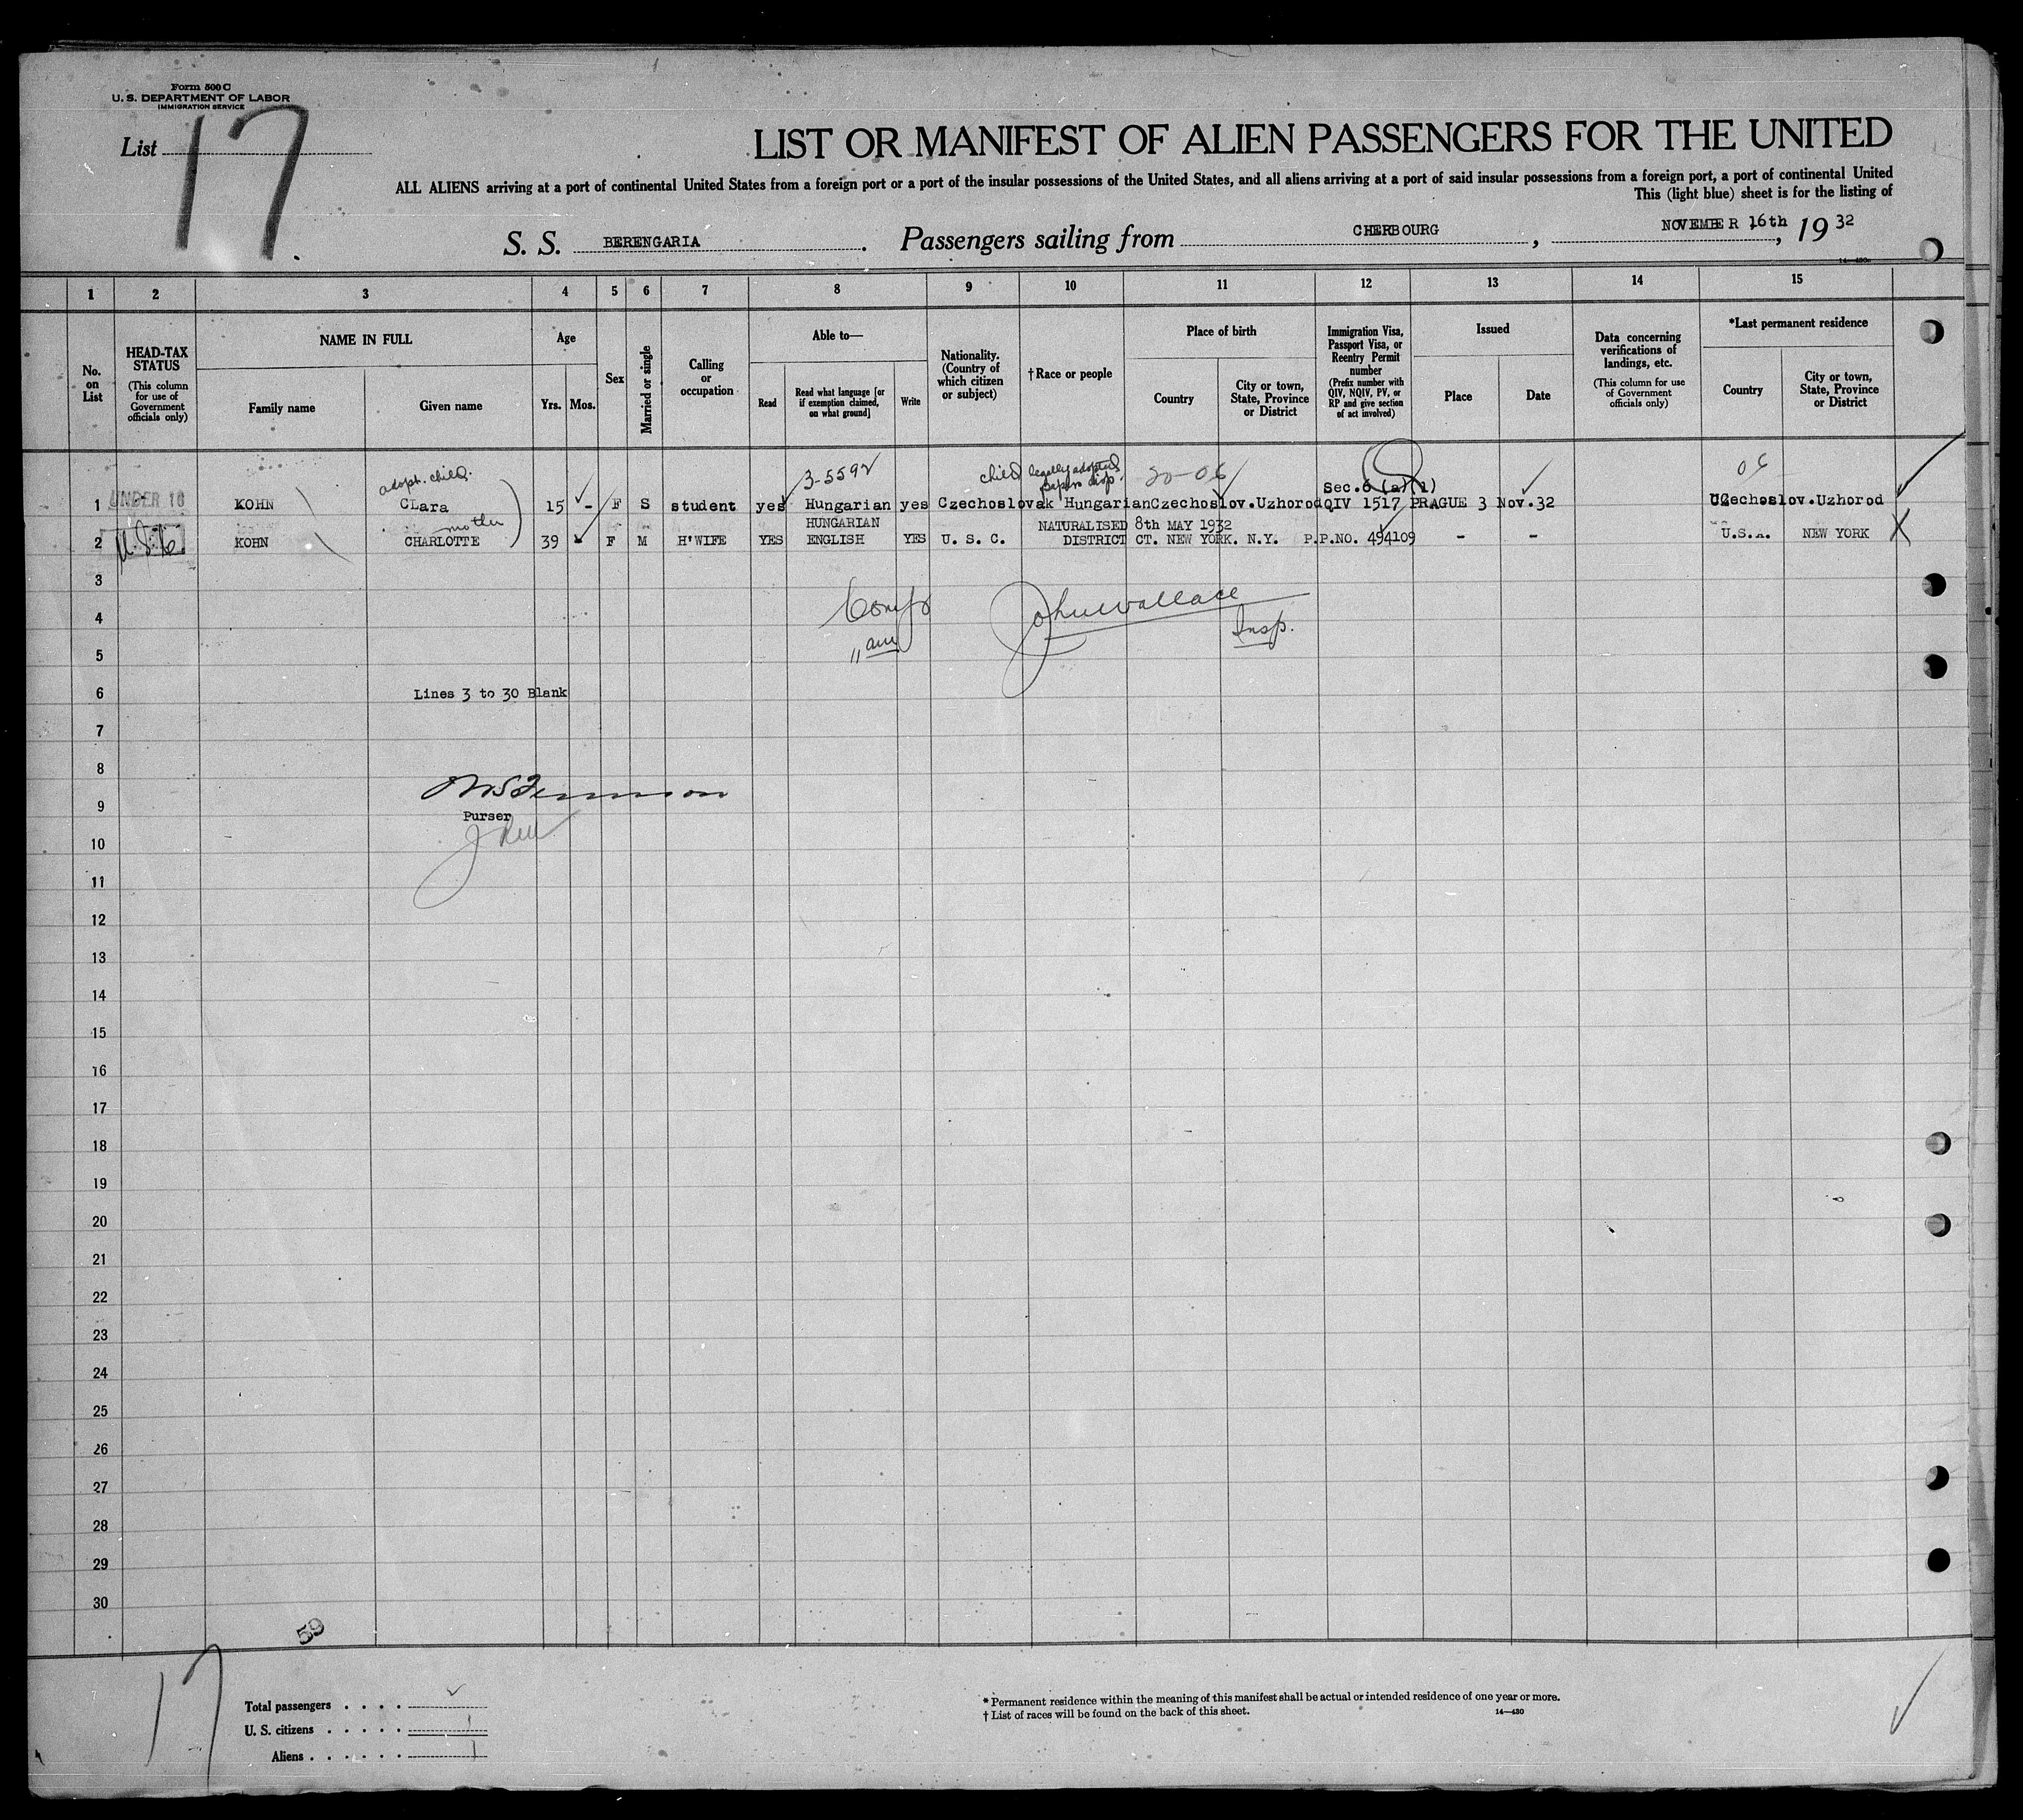 Form 500 C
U. S. DEPARTMENT OF LABOR
IMMIGRATION SERVICE
List 17
LIST OR MANIFEST OF ALIEN PASSENGERS FOR THE UNITED
ALL ALIENS arriving at a port of continental United States from a foreign port or a port of the insular possessions of the United States, and all aliens arriving at a port of said insular possessions from a foreign port, a port of continental United
This (light blue) sheet is for the listing of
S. S. BERENGARIA. Passengers sailing from CHERBOURG, NOVEMBER 16th, 19 32
14—430
1 2 3 4 5 6 7 8 9 10 11 12 13 14 15
No. on List
HEAD-TAX STATUS
(This column for use of Government officials only)
NAME IN FULL
Family name
Given name
Age
Yrs. Mos.
Sex
Married or single
Calling or occupation
Able to—
Read
Read what language [or if exemption claimed, on what ground]
Write
Nationality. (Country of which citizen or subject)
†Race or people
Place of birth
Country
City or town, State, Province or District
Immigration Visa, Passport Visa, or Reentry Permit number
(Prefix number with QIV, NQIV, PV, or RP and give section of act involved)
Issued
Place
Date
Data concerning verifications of landings, etc.
(This column for use of Government officials only)
*Last permanent residence
Country
City or town, State, Province or District
adopt. child. 3-5592 child legally adopted 20-06 06
Sec.6 (a)(1)
1 UNDER 16 KOHN CLara 15 - F S student yes Hungarian yes Czechoslovak Hungarian Czechoslov.Uzhorod QIV 1517 PRAGUE 3 Nov.32 Czechoslov.Uzhorod
mother HUNGARIAN NATURALISED 8th MAY 1932
2 KOHN CHARLOTTE 39 F M H'WIFE YES ENGLISH YES U. S. C. DISTRICT CT. NEW YORK. N.Y. P.P.NO. 494109 - - U.S.A. NEW YORK
3
4 John Wallace
Insp.
5
6 Lines 3 to 30 Blank
7
8
9
Purser
10
11
12
13
14
15
16
17
18
19
20
21
22
23
24
25
26
27
28
29
30
59
17
Total passengers . . . .
U. S. citizens . . . . . 1
Aliens . . . . . . 1
* Permanent residence within the meaning of this manifest shall be actual or intended residence of one year or more.
† List of races will be found on the back of this sheet.
14—430